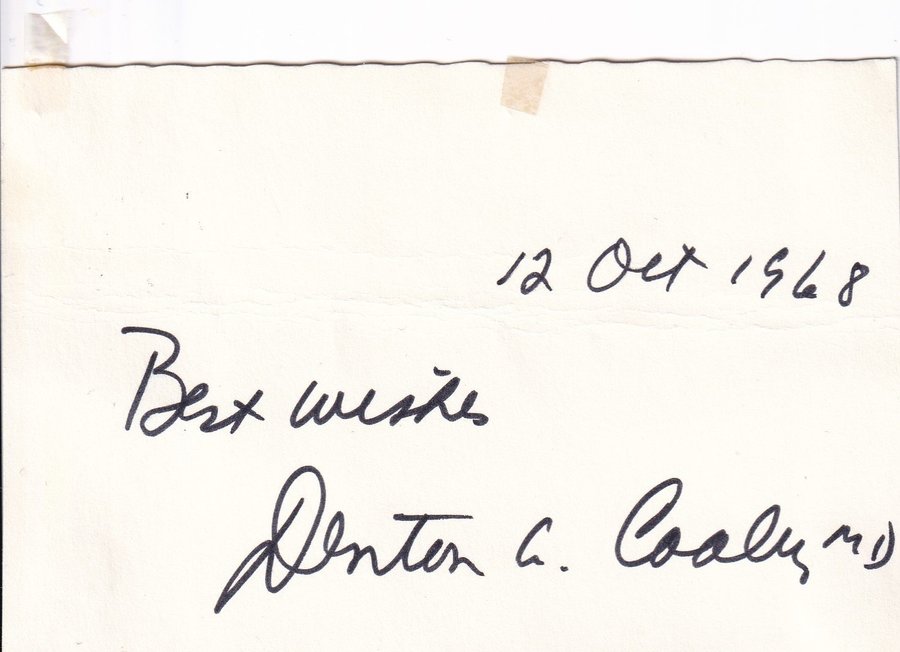 12 Oct 1968
Best wishes
Denton A. Cooley MD